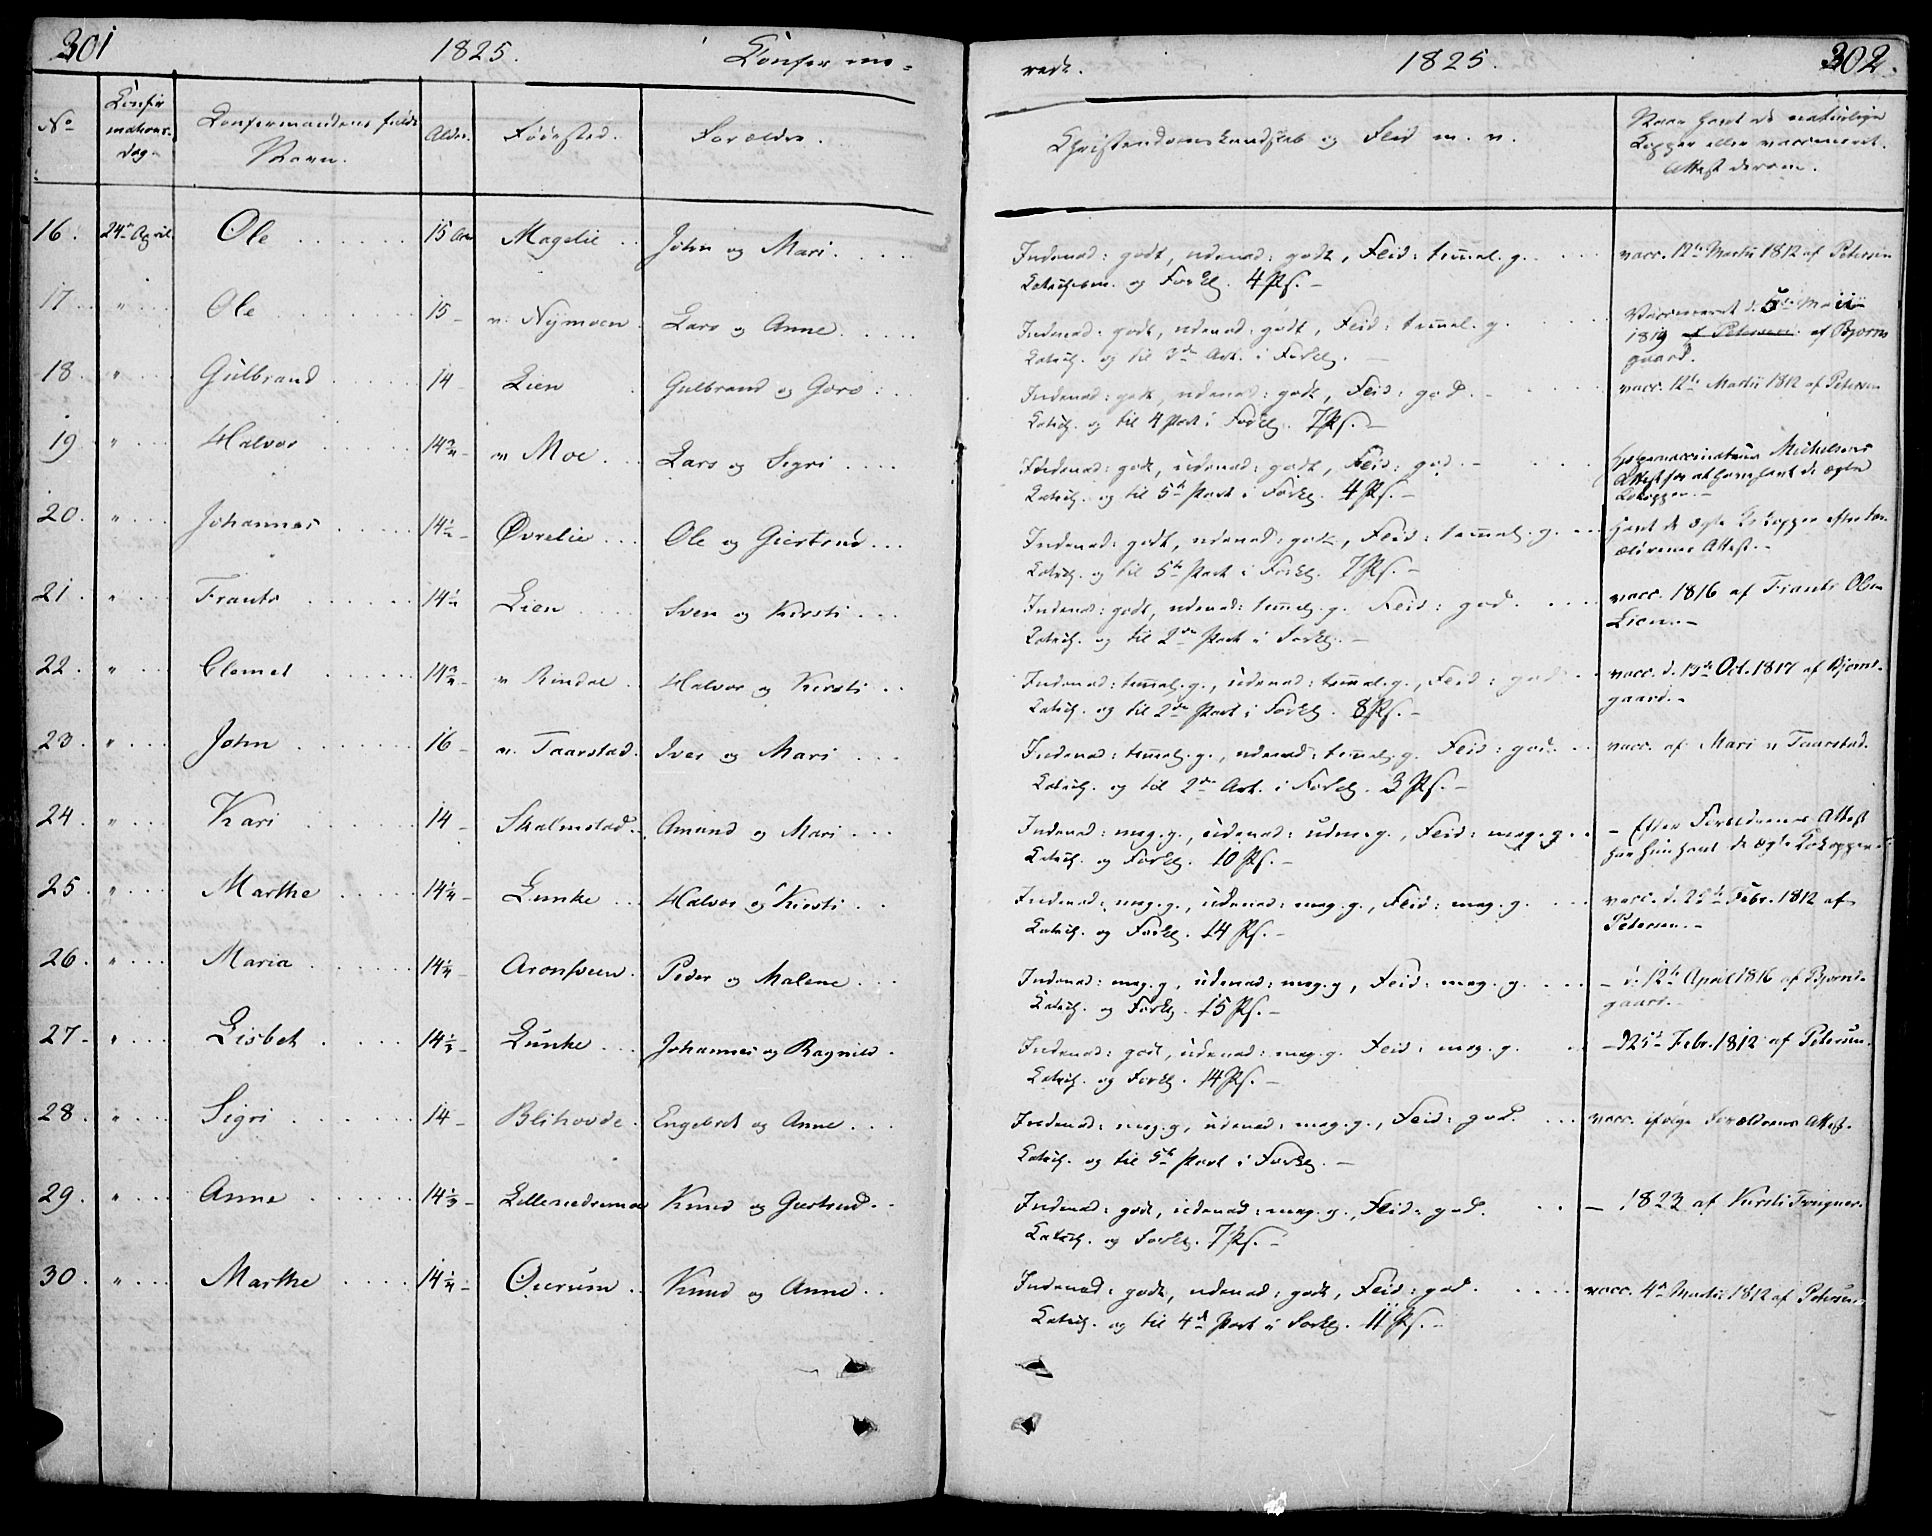 301 1825. Confirme-
No Confirmationsdag. Confirmandens fulde Navn. Alder. Fødested. Forældre.
16. 24de April. Ole 15 Aar Magelie John og Mari.
17. " Ole 15 n. Nymoen Lars og Anne
18. " Gulbrand 14 Lien Gulbrand og Goro
19. " Halvor 14 n Moe Lars og Sigri
20. " Johannes 14½ Øvrelie Ole og Giertrud
21. " Frants 14½ Lien Sven og Kirsti
22. " Clemet 14 n Rindal Halvor og Kirsti
23. " John 16 n. Taarstad. Iver og Mari
24. " Kari 14 Skalmstad Amund og Mari
25. " Marthe 14¼ Lunke Halvor og Kirsti
26. " Maria 14¼ Aronsveen. Peder og Malene
27. " Lisbet 14⅓ Lunke Johannes og Ragnild.
28. " Sigri 14 Blihovde Engebret og Anne
29. " Anne 14⅓ Knud og Giertrud
30. " Marthe 14¼ Qverum Knud og Anne
rede. 1825. 302.
Christendomskundskab og Flid m. v.
Naar havt de naturlige
Kopper eller vaccineret.
Attest derom.
Indenad: godt, udenad: godt, Flid: temmel. g. vacc. 12te Martii 1812 af Petersen
Catechismen. og Forkl. 4 Ps.
Vaccineret d. 5te Maii
Indenad: godt, udenad: godt, Flid: temmel. g. 1819 af Petersen af Bjørns
Catech. og til 3die Art. i Forkl. gaard.
Indenad: godt, udenad: godt, Flid: god. vacc. 12te Martii 1812 af Petersen
Catech. og til 4 Part i Forkl. 7 Ps.
Indenad: godt, udenad: godt, Flid: god. Michelsens
Attest for at have havt de ægte
Catech. og til 5te Part i Forkl. 4 Ps. Kokopper.
Indenad: godt, udenad: godt, Flid: temmel. g. havt de ægte Kokopper efter For-
Catech. og til 5te Part i Forkl. 7 Ps. ældrenes Attest.
Indenad: godt, udenad: temmel. g. Flid: god. vacc. 1816 af Frants Olsen
Catech. og til 2den Part i Forkl. Lien.
Indenad: temmel. g., udenad: temmel. g., Flid: god vacc. d. Oct. 1817 af Bjørns-
Catech. og til 2den Part i Forkl. 8 Ps. gaard.
Indenad: temmel. g., udenad: temmel. g. Flid: god. vacc. af Mari n Taarstad.
Catech. og til 2den Art. i Forkl. 3 Ps.
Indenad: meg. g., udenad: udm. g., Flid: meg. g. Efter Forældrenes Attest
Catech. og Forkl. 10 Ps. har hun havt de ægte Kokopper.
Indenad: meg. g., udenad: meg. g., Flid: meg. g. vacc. d. 25de Febr. 1812 af
Catech. og Forkl. 14 Ps. Petersen.
Indenad: meg. g, udenad: meg. g, Flid: meg. g. d. 12te April 1816 af Bjørns-
Catech. og Forkl. 15 Ps. gaard.
Indenad: godt, udenad: meg. g. Flid: meg. g. d 25de Febr. 1812 af Petersen.
Catech. og Forkl. 14 Ps.
Indenad: meg. g, udenad: meg. g., Flid: god. vacc. ifølge Forældrenes Attest.
Catech. og til 5te Part i Forkl.
Indenad: godt, udenad: meg. g., Flid: god. 1823 af Kirsti
Catech. og Forkl. 7 Ps.
Indenad: godt, udenad: godt, Flid: god. vacc. 4de Martii 1812 af Petersen
Catech. og til 4de Part i Forkl. 11 Ps.